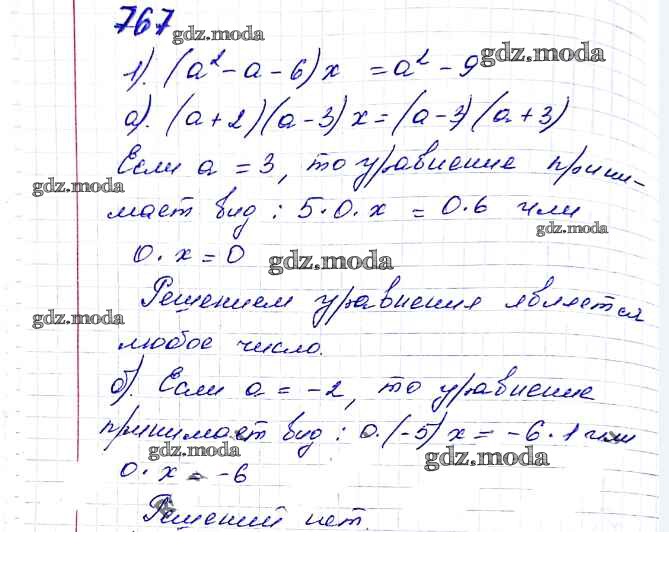 767 gdz.moda
1). (a² - a - 6)x = a² - 9 gdz.moda
а). (a + 2)(a - 3)x = (a - 3)(a + 3)
Если a = 3, то уравнение прини-
gdz.moda
мает вид: 5·0·x = 0·6 или
gdz.moda
0·x = 0 gdz.moda
Решением уравнения является
gdz.moda
любое число.
б). Если a = -2, то уравнение
принимает вид: 0·(-5)x = -6·1 или
gdz.moda gdz.moda
0·x = -6
Решений нет.